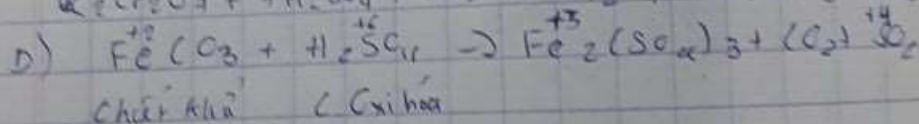 D) Fe^{+2}CO_3 + H_2S^{+6}O_4 → Fe^{+3}_2(SO_4)_3 + CO_2 + S^{+4}O_2
Chất khử C Oxi hóa